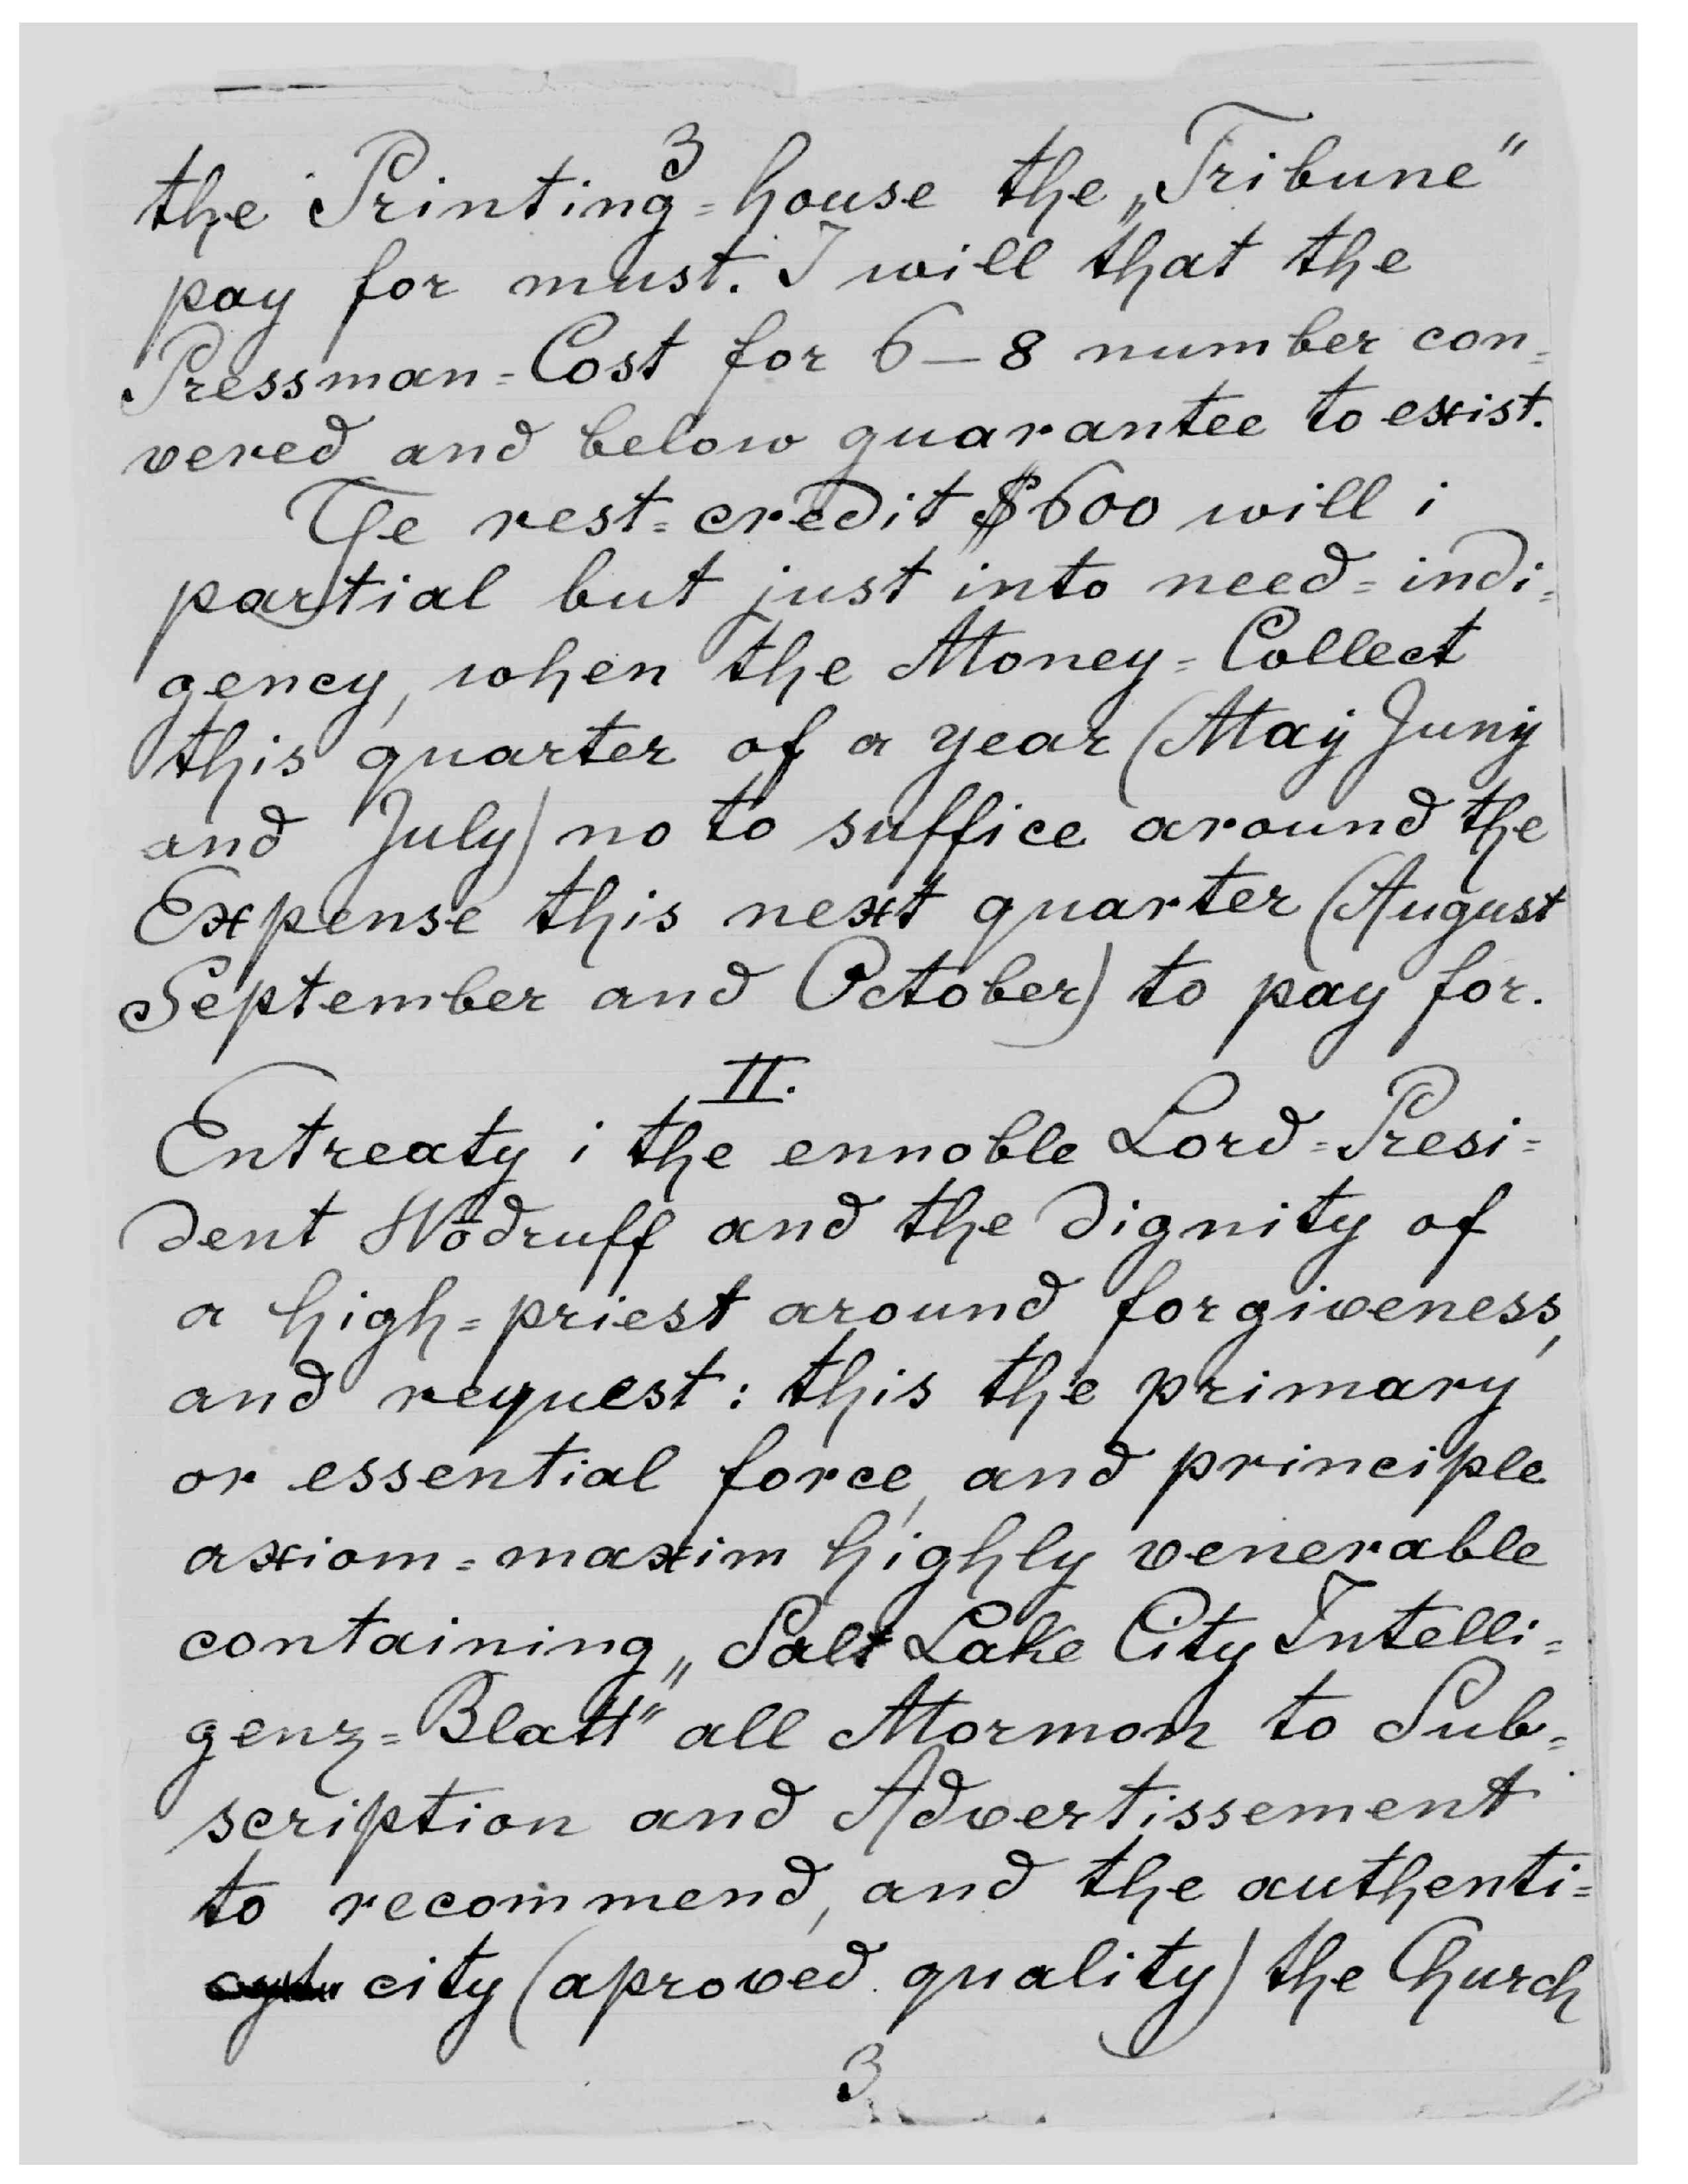 3
the Printing=house the „Tribune"
pay for must. I will that the
Pressman=Cost for 6—8 number con=
vered and below guarantee to exist.
The rest=credit $600 will i
partial but just into need=indi=
gency, when the Money=Collect
this quarter of a year (Maÿ Junÿ
and July) no to suffice around the
Expense this next quarter (August
September and October) to pay for.
II.
Entreaty i the ennoble Lord=Presi=
dent Wodruff and the dignity of
a high=priest around forgiveness,
and request: this the primary
or essential force, and principle
axiom=maxim highly venerable
containing „Salt Lake City Intelli=
genz=Blatt" all Mormon to Sub=
scription and Advertissement
to recommend, and the authenti=
city (aproved quality) the Church
3